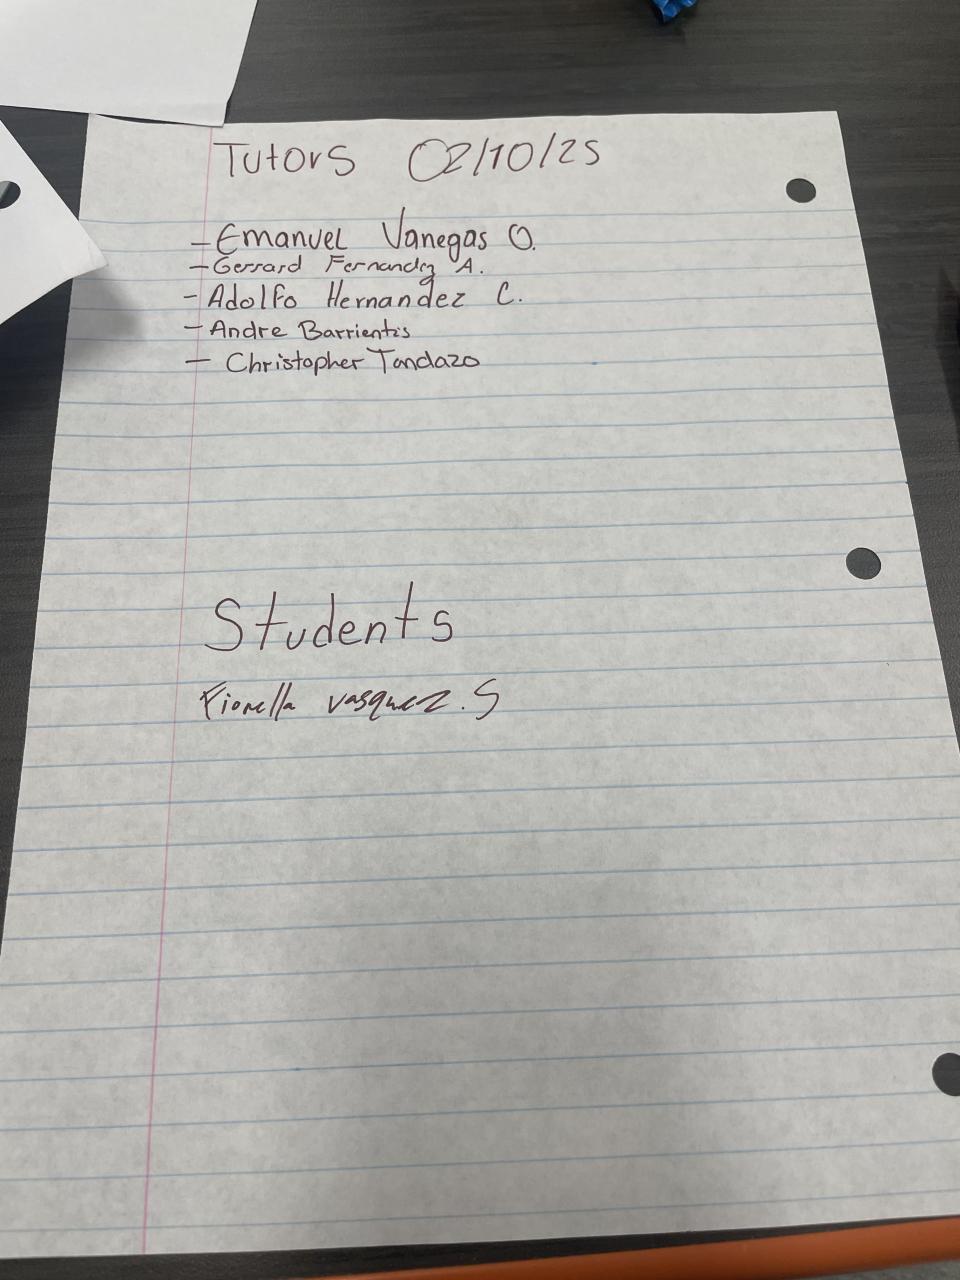 Tutors 02/10/25
- Emanuel Vanegas O.
- Gerrard Fernandez A.
- Adolfo Hernandez C.
- Andre Barrientos
- Christopher Tandazo
Students
Fiorella vasquez. S